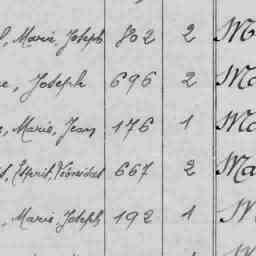 Marie, Joseph 802 2
Joseph 696 2
Marie, Jean 176 1
Esprit, Léonidas 667 2 Ma
Marie, Joseph 192 1